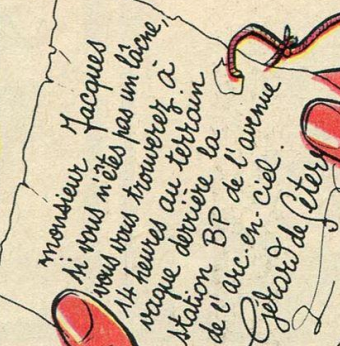 monsieur Jacques
si vous n'êtes pas un lâche,
vous vous trouverez à
14 heures au terrain
vague derrière la
station BP de l'avenue
de l'arc-en-ciel.
Gérard de